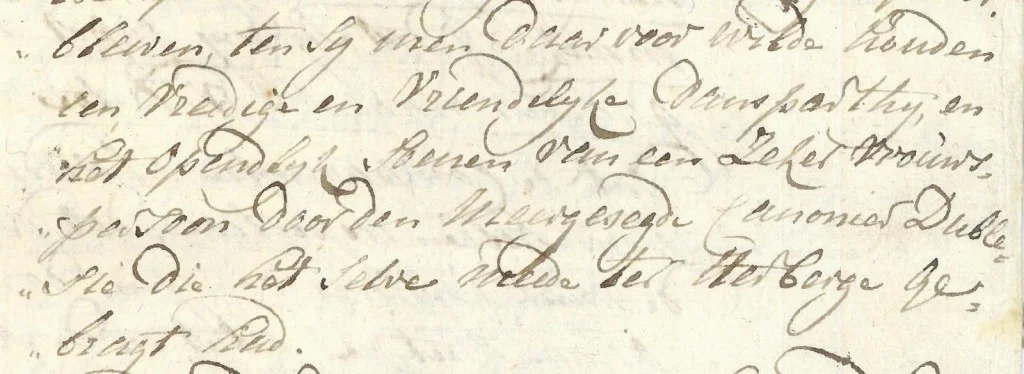 „ bleven, ten sy men daar voor wilde houden
een vredige en vriendelyke dansparthy, en
„ het opendlyk kussen van een Zeker vrouws-
„ persoon door den meergesegde Canonier Duble-
„ sie die het selve mede ter Herberge ge-
„ bragt had.